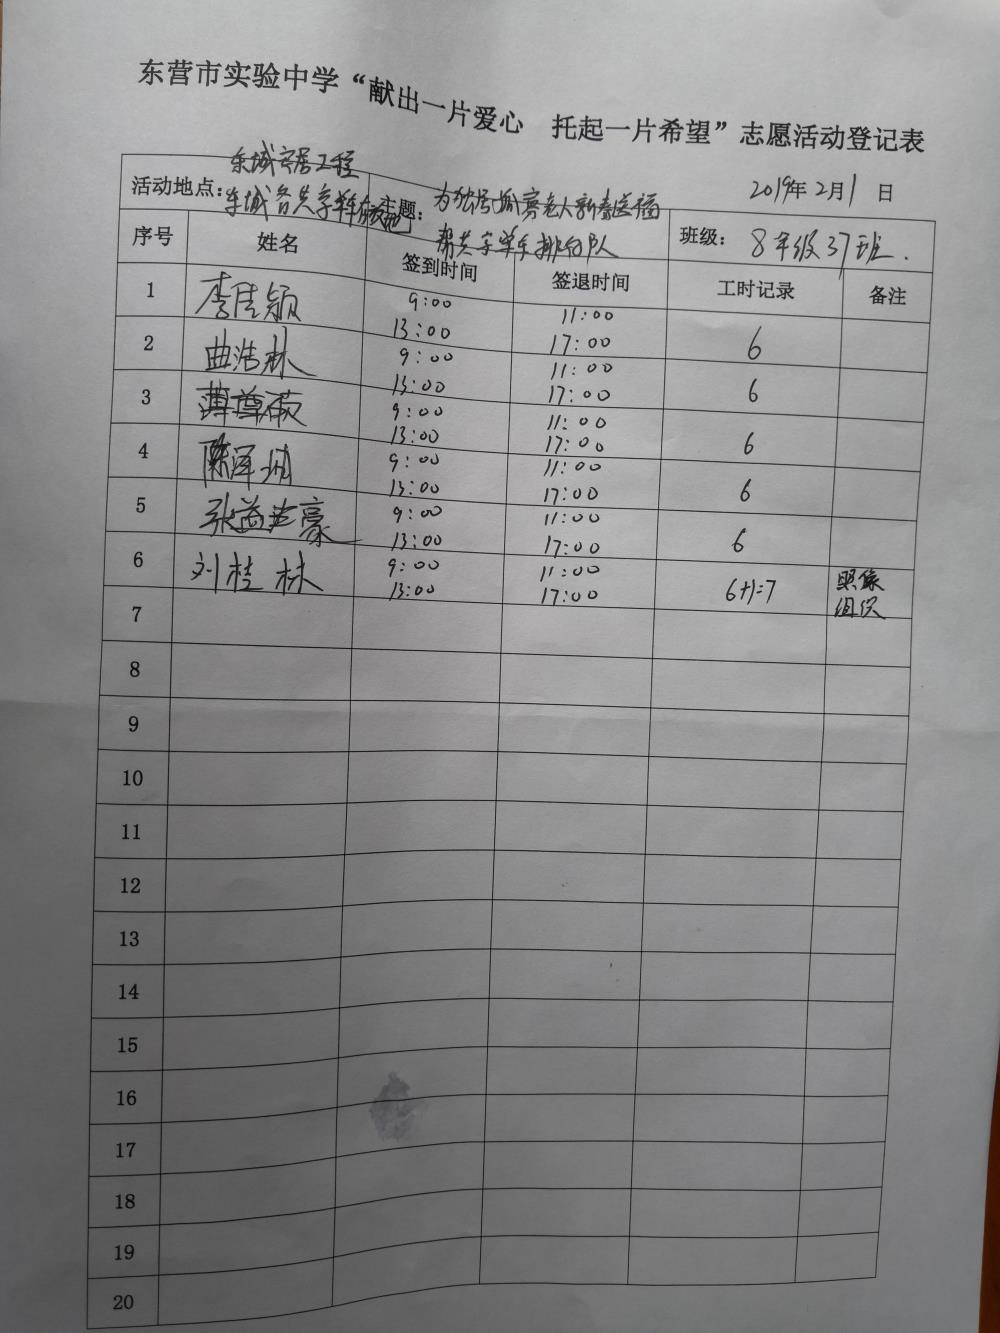 东营市实验中学“献出一片爱心 托起一片希望”志愿活动登记表
活动地点：东城安居工程
东城各共享单车存放地
主题：为独居孤寡老人新春送福
帮共享单车排好队
2019年2月1日
班级：8年级37班.
序号 姓名 签到时间 签退时间 工时记录 备注
1 李佳颖 9:00 11:00
13:00 17:00 6
2 曲浩林 9:00 11:00
13:00 17:00 6
3 薄尊硕 9:00 11:00
13:00 17:00 6
4 陈泽 9:00 11:00
13:00 17:00 6
5 张益豪 9:00 11:00
13:00 17:00 6
6 刘桂林 9:00 11:00 照像
13:00 17:00 6+1=7 组织
7
8
9
10
11
12
13
14
15
16
17
18
19
20